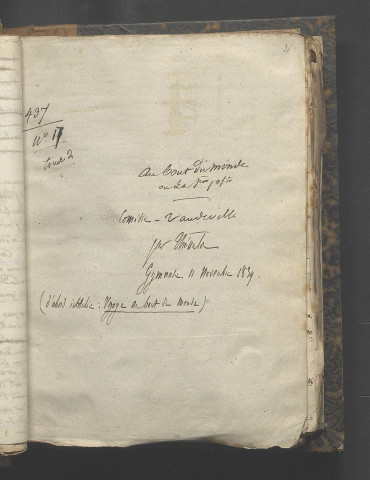 437
No 17
Au bout du monde
ou la
Comédie - Vaudeville
par
Gymnase, 11 Novembre 1839.
(d'abord intitulée : Voyage au bout du monde)